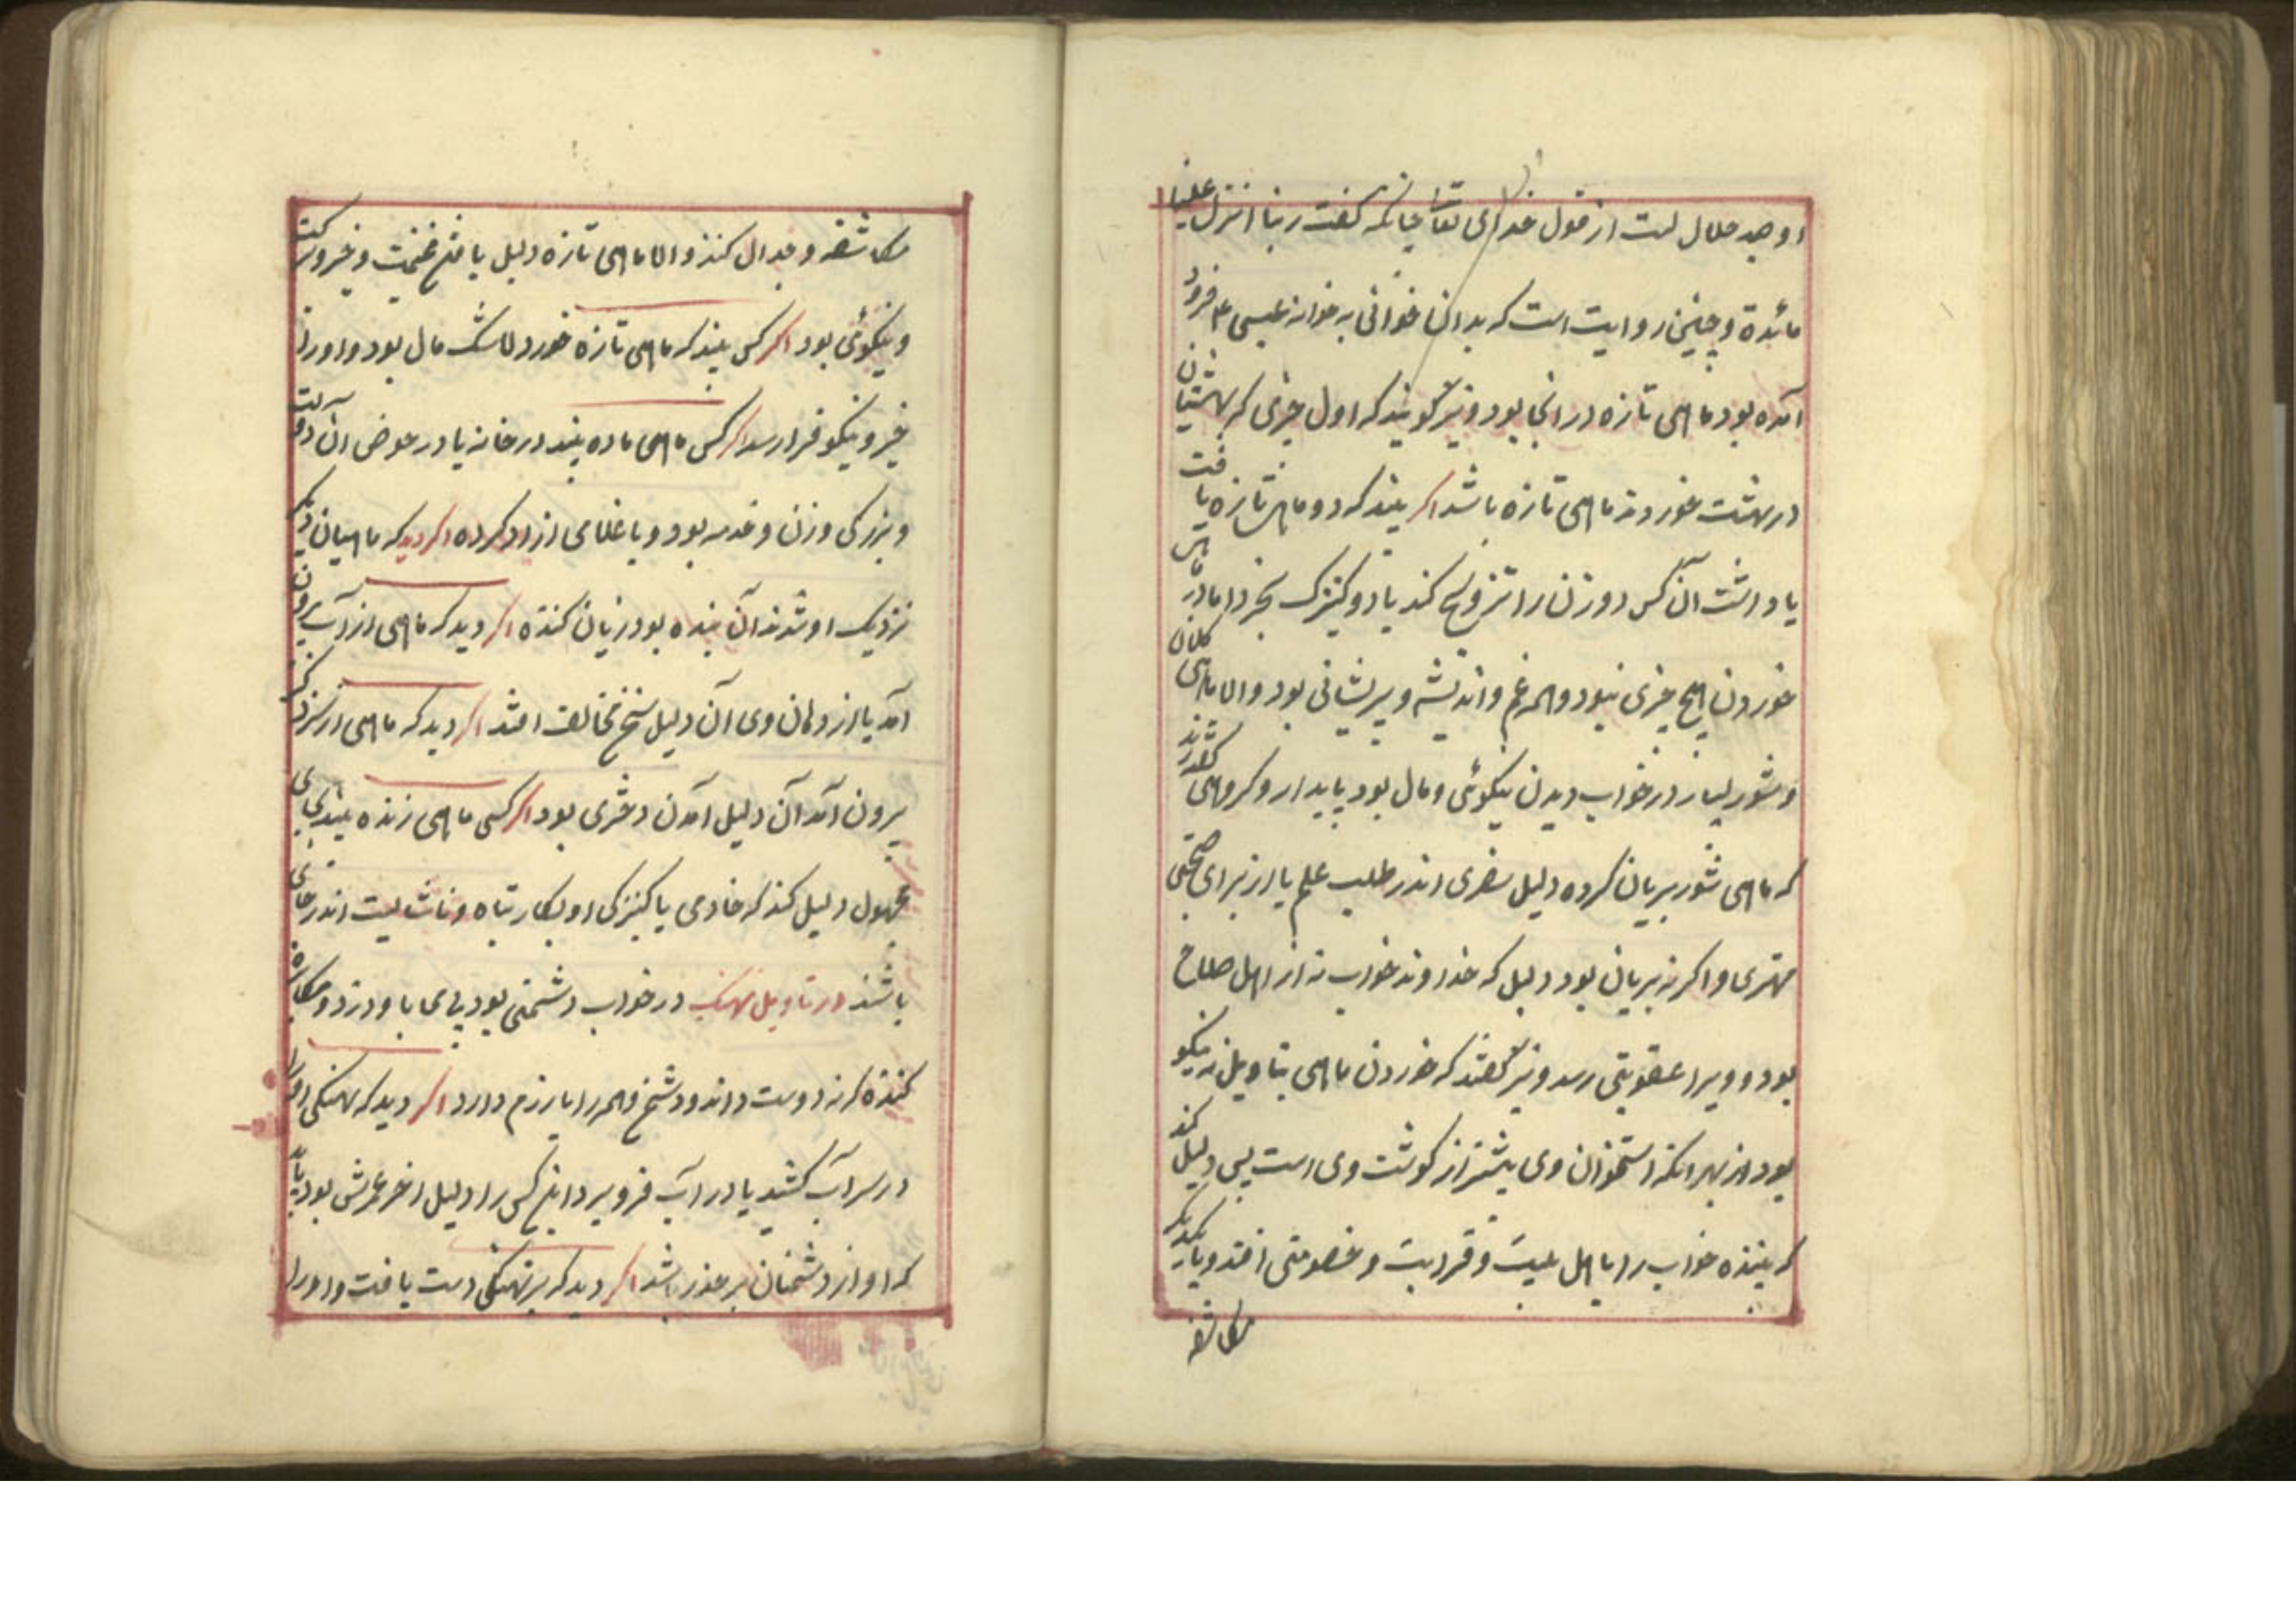 او صید حلال است از قول خدای تعالی چنانکه گفت ربنا انزل علینا
مائدة و چنین روایت است که بدان خوانی به خوانه عیسی ع فرود
آمده بود ماهی تازه در آنجا بود و نیز گویند که اول چیزی که بهشتیان
در بهشت خوردند ماهی تازه باشد اگر بیند که دو ماهی تازه یافت
یا داشت آن کس دو زن را تزویج کند یا دو کنیزک بخرد اما در ماهی
خوردن هیچ چیزی نبود و همه غم و اندیشه و پریشانی بود و الا ماهی کلان
و شور بسیار در خواب دیدن نیکوئی و مال بود پایدار و گروهی گفته‌اند
که ماهی شور بریان کرده دلیل سفری اندر طلب علم یا از برای صحبتی
مهتری و اگر نه بریان بود دلیل که خداوند خواب نه از اهل صلاح
بود و ویرا عقوبتی رسد و نیز گفتند که خوردن ماهی بتاویل نه نیکو
بود از بهر انکه استخوان وی بیشتر از گوشت وی است پس دلیل کند
که بیننده خواب را با اهل بیت و قرابت و خصومتی افتد و با یکدیگر
مکاشفه
مکاشفه و جدال کنند و الا ماهی تازه دلیل یافتن غنیمت و خیر و برکت
و نیکوئی بود اگر کس بیند که ماهی تازه خورد مال بود و او را
خیر و نیکو فرا رسد اگر کس ماهی ماده بیند در خانه یا در حوض آن دولت
و بزرگی و زن و خدمه بود و یا غلامی ازاد کرده اگر دید که ماهیان
نزدیک او شدند آن بنده بود زیان کننده اگر دید که ماهی از آب بیرون
آمد یا از دهان وی آن دلیل سخن مخالفت افتد اگر دید که ماهی از
بیرون آمد آن دلیل آمدن دختری بود اگر کسی ماهی زنده بیند بجای
مجهول دلیل کند که خادمی یا کنیزکی او بکار تباه و ناشایست اندر جای
باشند در تاویل نهنک در خواب دشمنی بود با او دزد و مکابره
کننده که نه دوست داند و دشمن و همه را دارد اگر دید که نهنکی او را
در سر آب کشید یا در آب فرو برد این کس را دلیل اخر عمرش بود باید
که او از دشمنان بر حذر باشد اگر دید که بر نهنکی دست یافت و او را